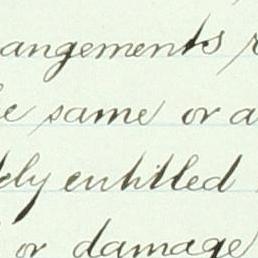 angements
e same or a
ely entitled
or damage